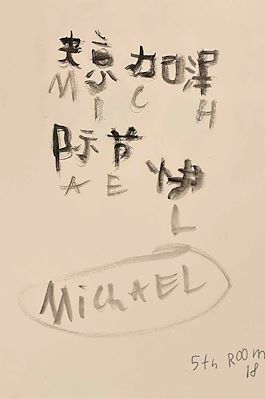 加
M I C H
际节
A E
L
MichAEL
5th ROOM
18